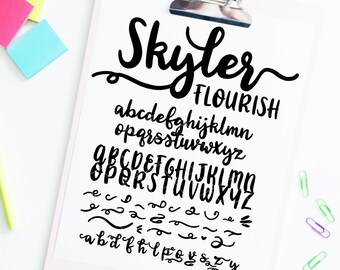 Skyler
FLOURISH
abcdefghijklmn
opqrstuvwxyz
ABCDEFGHIJKLMN
OPQRSTUVWXYZ